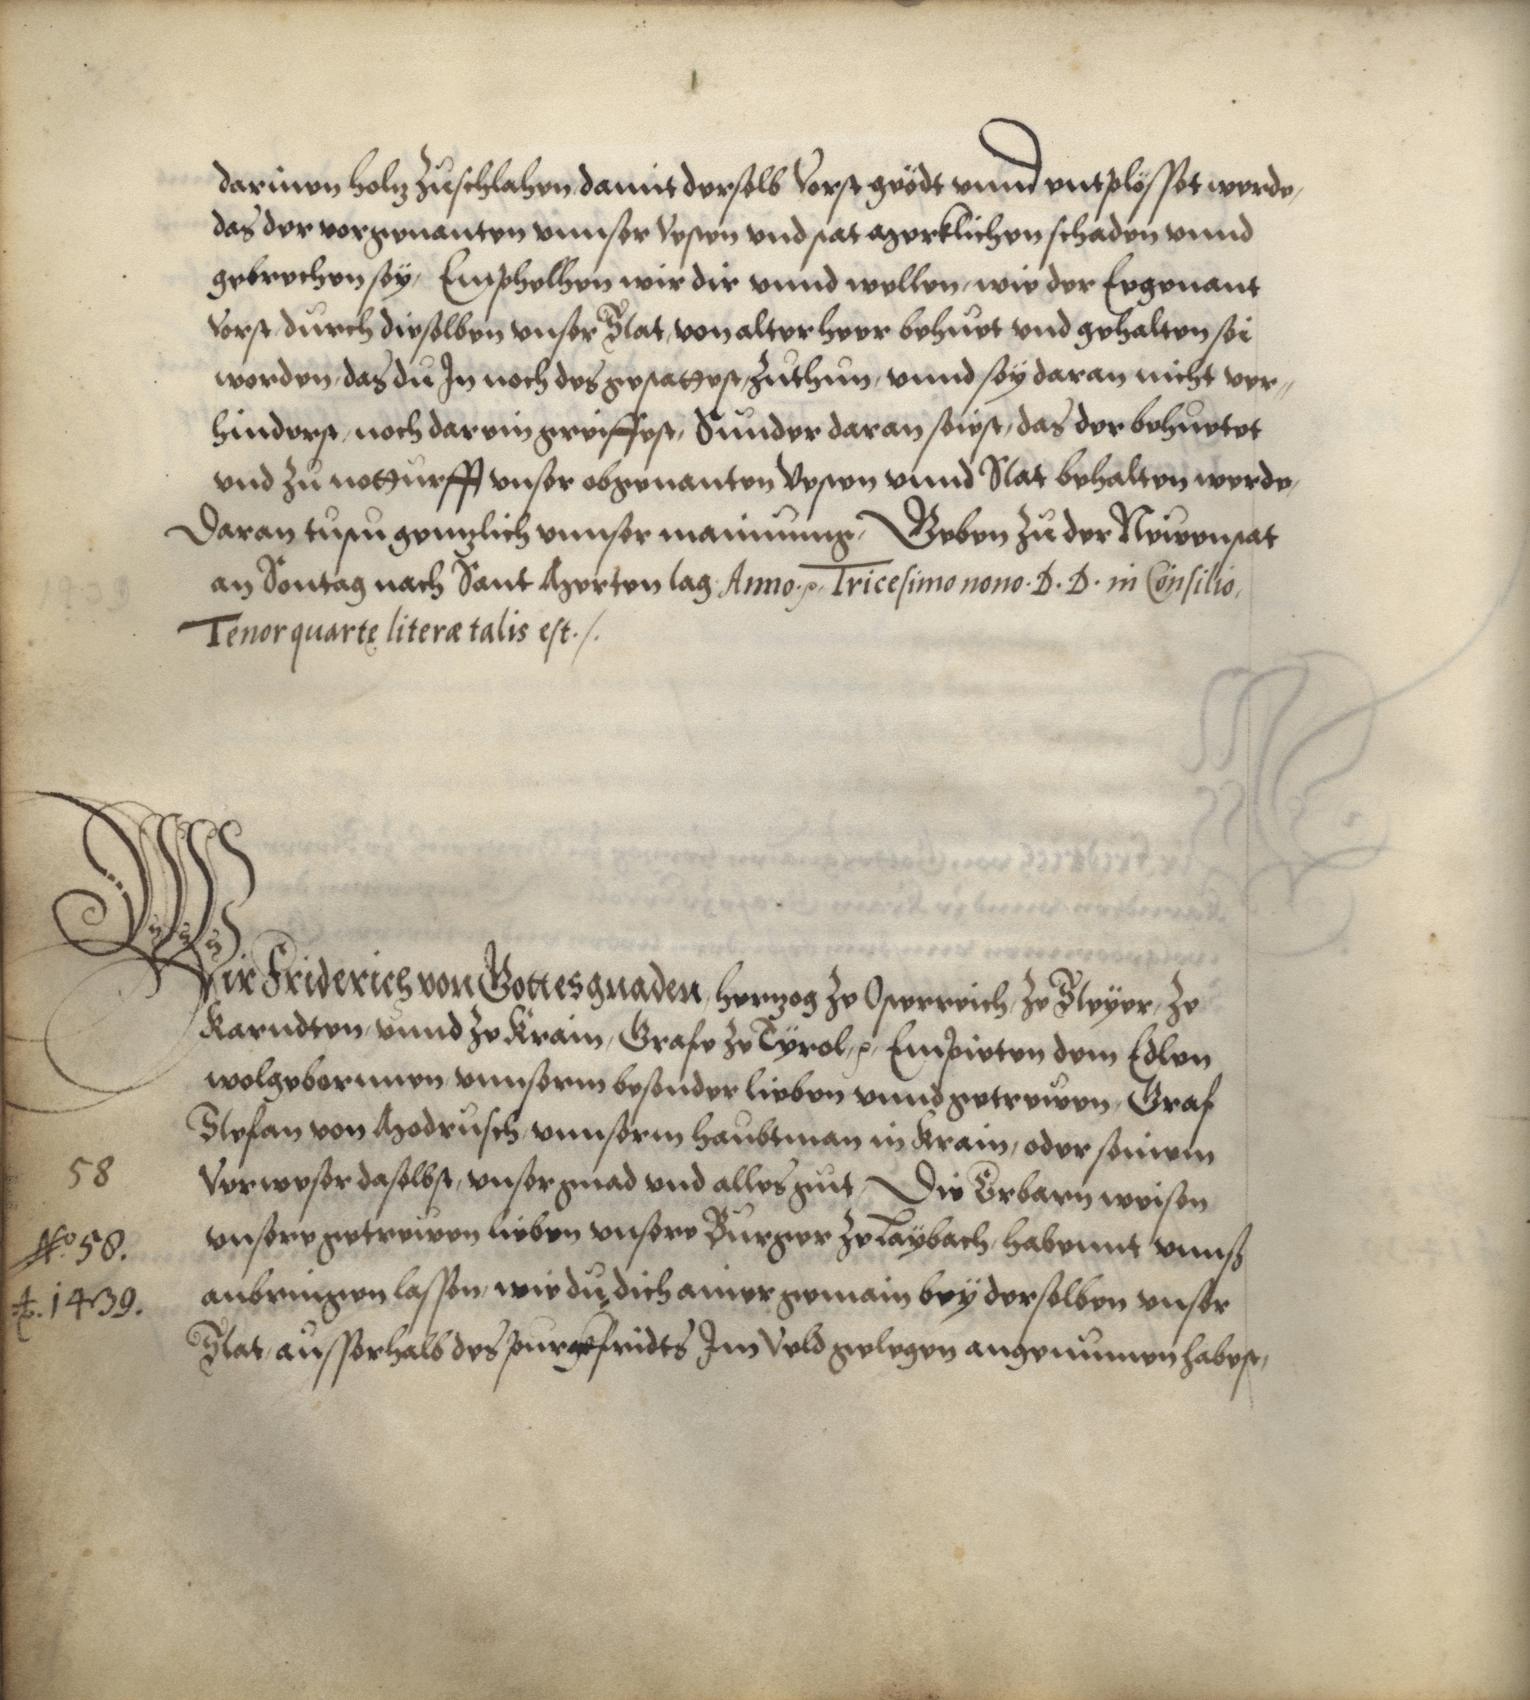 darinnen holtz Zuschlahen, damit derselb Vorst geödt vnnd entplösset werde,
das der vorgenanten vnnser Vesten vnd stat merklichen schaden vnnd
gebrechen sey, Emphelhen wir dir vnnd wellen, wie der Eegenant
Vorst, durch dieselben vnser Stat, von alter heer behuet vnd gehalten sei
worden, das du In noch des gestattest, Zuthun, vnnd sey daran nicht ver„
hinderst, noch darein greiffest, Sunder daran seiest, das der behuetet
vnd Zu notturfft vnser obgenanten Vesten vnnd Stat behalten werde,
Daran tustu genntzlich vnnser mainnung, Geben Zu der Neuenstat
an Sontag nach Sant Merten tag. Anno. ꝛc. Tricesimo nono. D. D. in Consilio,
Tenor quartę literæ talis est. /.
Wir Friderich von Gottes gnaden, hertzog Ze Osterreich, Ze Steyer, Ze
Karndten, vnnd Ze Krain, Grafe Ze Tÿrol, ꝛc, Empieten dem Edlen
wolgebornnen vnnserm besonder lieben vnnd getrewen, Graf
Stefan von Modrusch, vnnserm haubtman in Krain, oder seinem
58
Verweser daselbst, vnser gnad vnd alles guet, Die Erbarn weisen
No. 58.
vnsere getrewen lieben vnsere Burger Ze Laÿbach, habennt vnnß
A. 1439.
anbringen lassen, wie du dich ainer gemain bey derselben vnser
Stat, ausserhalb des purgkfridts Im Veld gelegen angenumen habest,